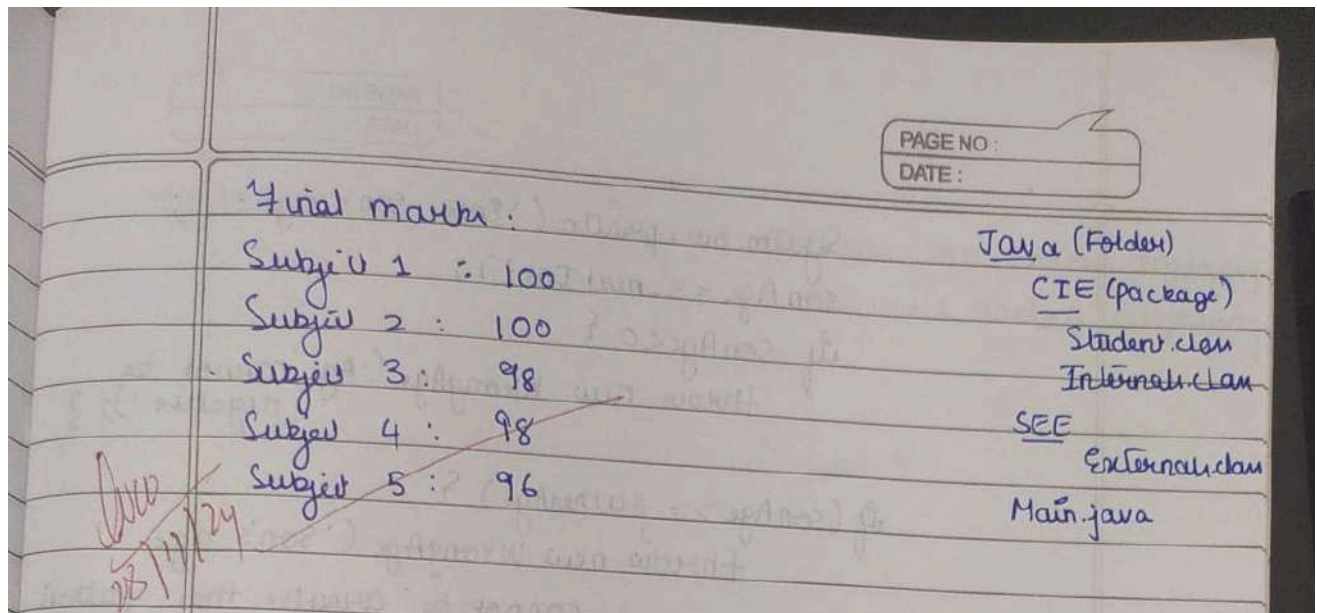 PAGE NO :
DATE :
Final marks :
Subject 1 : 100
Subject 2 : 100
Subject 3 : 98
Subject 4 : 98
Subject 5 : 96
Java (Folder)
CIE (package)
Student.class
Internals.class
SEE
Externals.class
Main.java
28/11/24